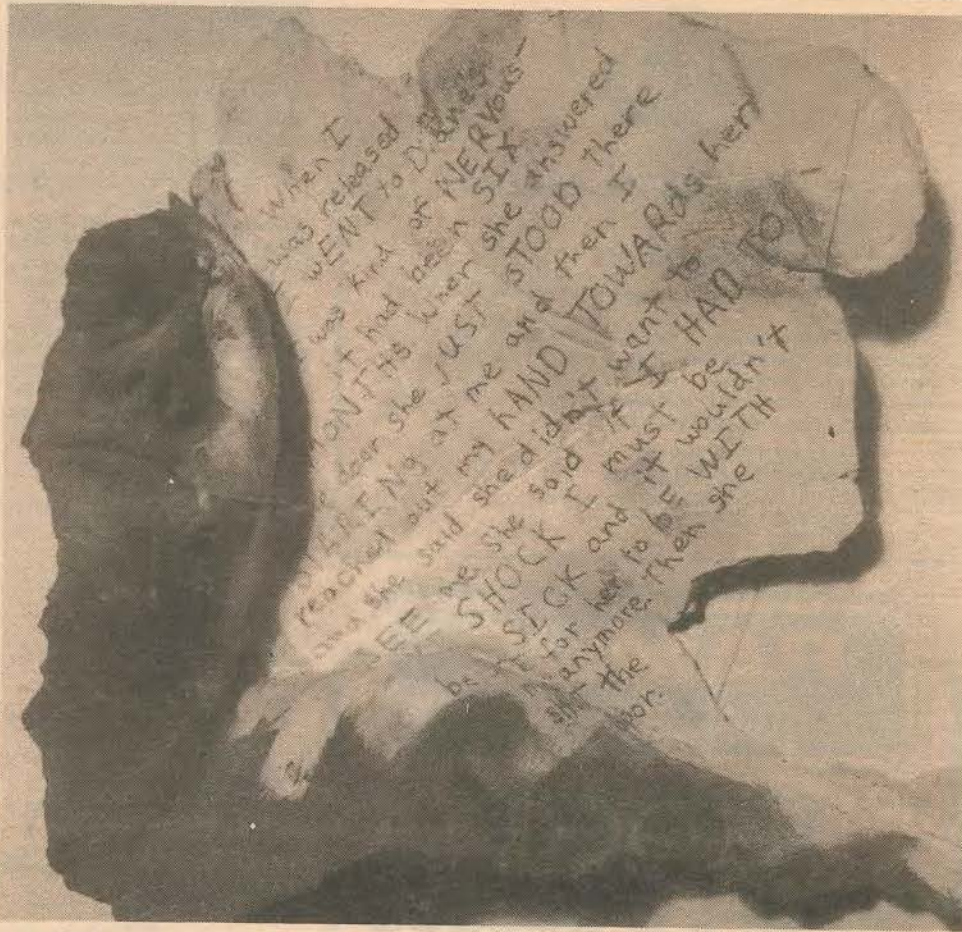 When I
was released
I WENT to Diane's
I was kind of NERVOUS-
it had been SIX
MONTHS when she answered
the door she JUST STOOD there
STARING at me and then I
reached out my hAND TOWARds her
and she said she didn't want to
SEE me she said if I HAD TO
SHOCK I must be
SICK and it wouldn't
be for her to bE WITH
anymore. Then she
shut the
door.